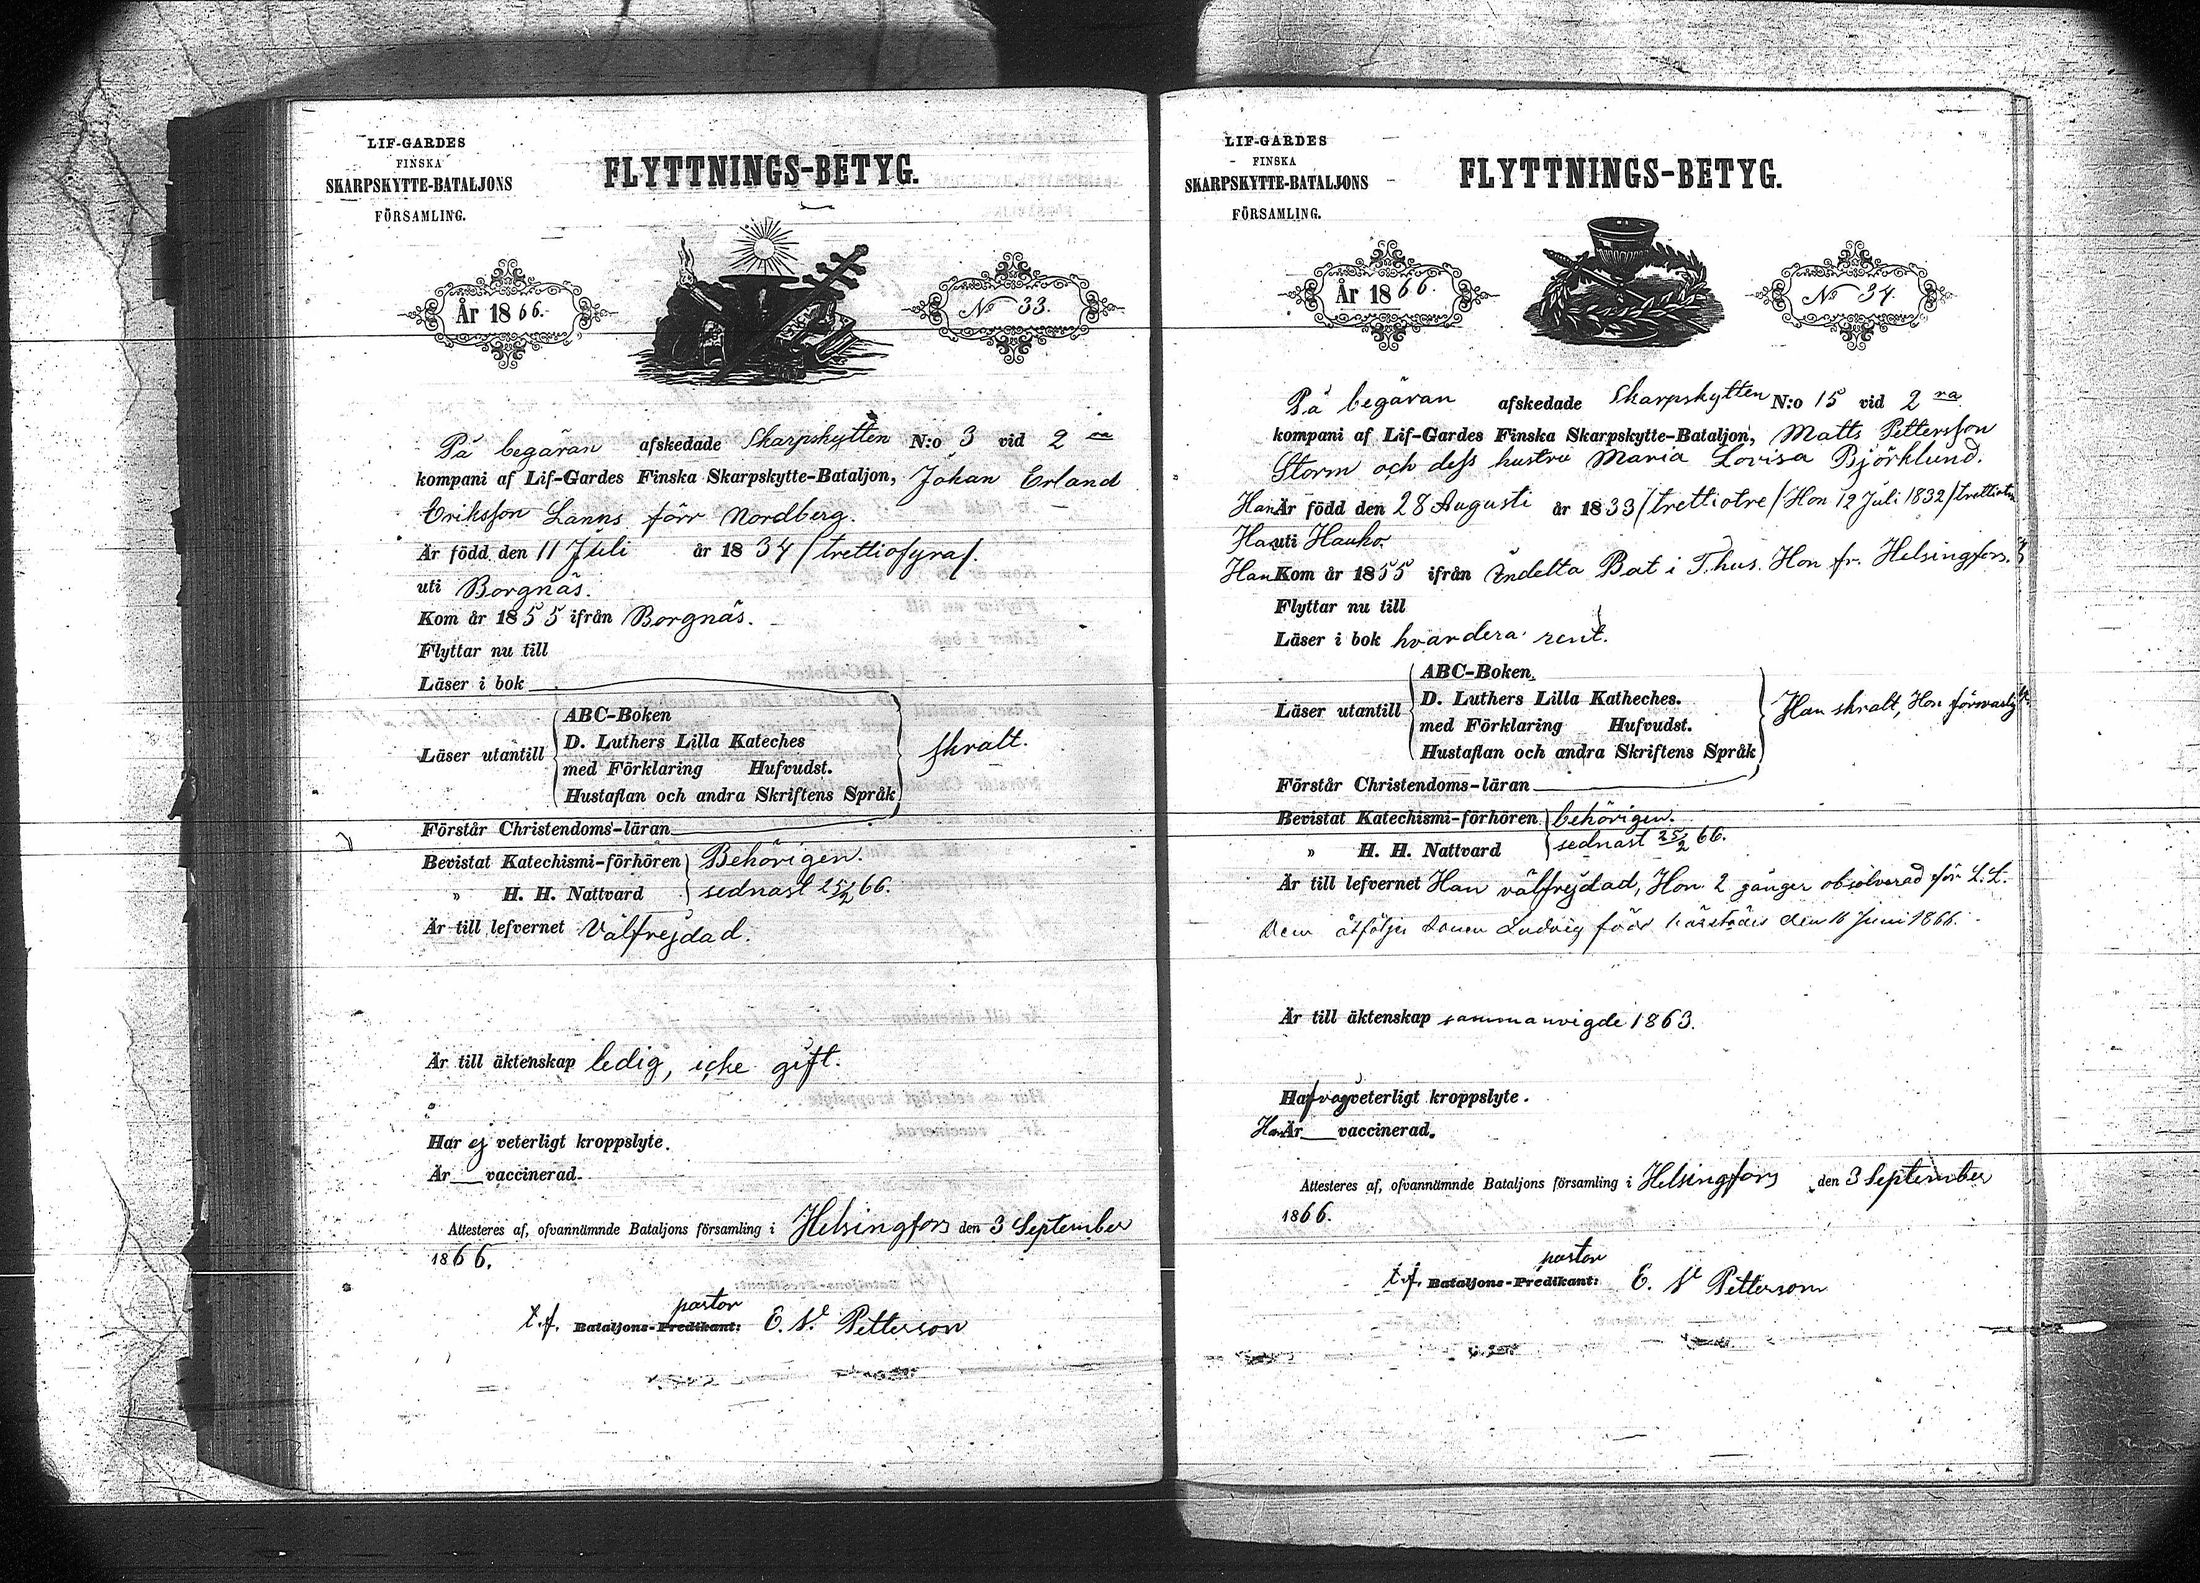 LIF-GARDES
FINSKA
SKARPSKYTTE-BATALJONS
FÖRSAMLING.
FLYTTNINGS-BETYG.
År 1866.
No 33.
På begäran afskedade Skarpskytten N:o 3 vid 2 ra
kompani af Lif-Gardes Finska Skarpskytte-Bataljon, Johan Erland
Eriksson Lanns förr Nordberg.
Är född den 11 Juli år 1834 /trettiofyra/.
uti Borgnäs.
Kom år 1855 ifrån Borgnäs.
Flyttar nu till
Läser i bok
Läser utantill
ABC-Boken
D. Luthers Lilla Kateches
med Förklaring Hufvudst.
Hustaflan och andra Skriftens Språk
skralt.
Förstår Christendoms-läran
Bevistat Katechismi-förhören Behörigen.
" H. H. Nattvard sednast 25/2 66.
Är till lefvernet Välfrejdad.
Är till äktenskap ledig, icke gift.
Har ej veterligt kroppslyte.
Är vaccinerad.
Attesteres af, ofvannämnde Bataljons församling i Helsingfors den 3 September
1866.
pastor
t.f. Bataljons-Predikant: E. Petterson
LIF-GARDES
FINSKA
SKARPSKYTTE-BATALJONS
FÖRSAMLING.
FLYTTNINGS-BETYG.
År 1866.
No 34.
På begäran afskedade Skarpskytten N:o 15 vid 2 ra
kompani af Lif-Gardes Finska Skarpskytte-Bataljon, Matts Pettersson
Storm och dess hustru Maria Lovisa Björklund.
Han Är född den 28 Augusti år 1833 /trettiotre/ Hon 12 Juli 1832/
Han uti Hauho.
Han Kom år 1855 ifrån Indelta Bat i T.hus. Hon fr. Helsingfors.
Flyttar nu till
Läser i bok hvardera rent.
Läser utantill
ABC-Boken
D. Luthers Lilla Katheches.
med Förklaring Hufvudst.
Hustaflan och andra Skriftens Språk
Han skralt, Hon försvarligt.
Förstår Christendoms-läran
Bevistat Katechismi-förhören behörigen.
" H. H. Nattvard sednast 25/2 66.
Är till lefvernet Han välfrejdad, Hon 2 gånger absolverad för L.L.
Dem åtföljer sonen Ludvig född härstädes den 16 Juni 1866.
Är till äktenskap sammanvigde 1863.
veterligt kroppslyte.
Är vaccinerad.
Attesteres af, ofvannämnde Bataljons församling i Helsingfors den 3 September
1866.
pastor
t.f. Bataljons-Predikant: E. Petterson